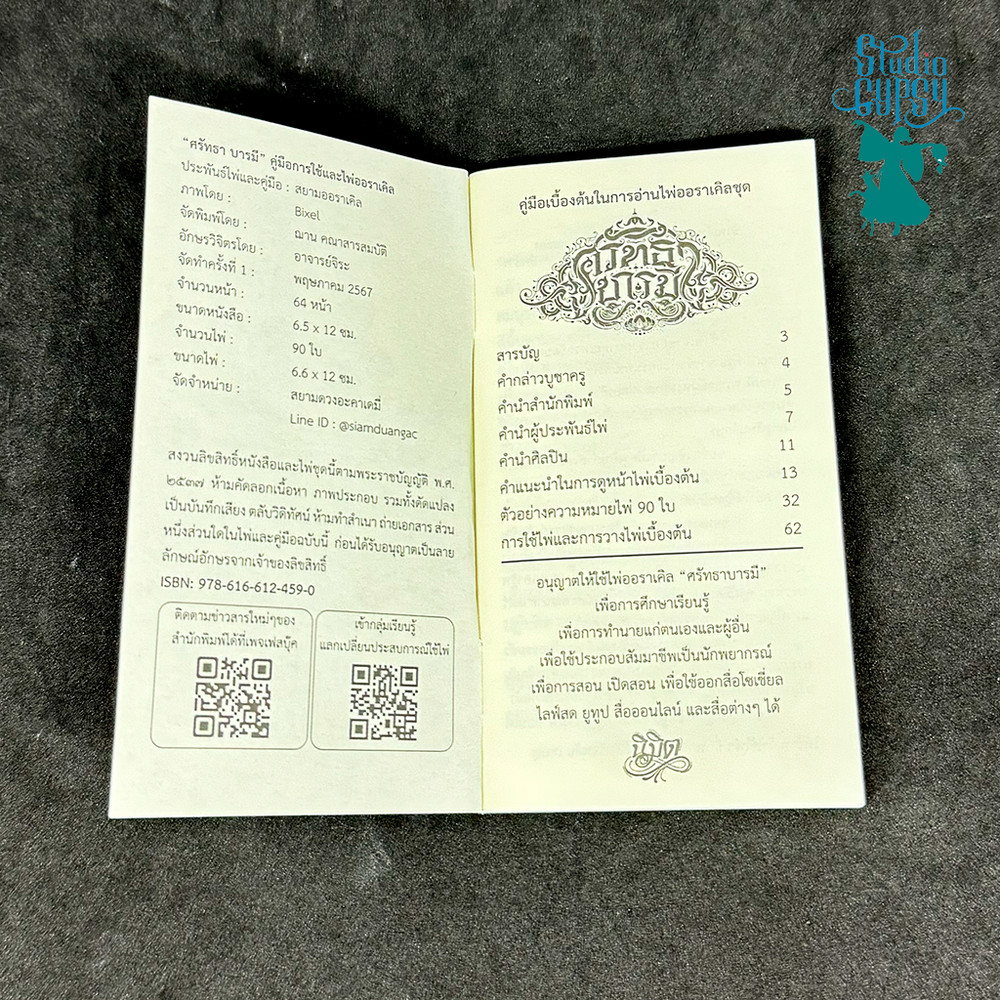 Studio
GYPSY
"ศรัทธา บารมี" คู่มือการใช้และไพ่ออราเคิล
ประพันธ์ไพ่และคู่มือ : สยามออราเคิล
ภาพโดย : Bixel
จัดพิมพ์โดย : ฌาน คณาสารสมบัติ
อักษรวิจิตรโดย : อาจารย์จิระ
จัดทำครั้งที่ 1 : พฤษภาคม 2567
จำนวนหน้า : 64 หน้า
ขนาดหนังสือ : 6.5 x 12 ซม.
จำนวนไพ่ : 90 ใบ
ขนาดไพ่ : 6.6 x 12 ซม.
จัดจำหน่าย : สยามดวงอะคาเดมี่
Line ID : @siamduangac
สงวนลิขสิทธิ์หนังสือและไพ่ชุดนี้ตามพระราชบัญญัติ พ.ศ.
๒๕๓๗ ห้ามคัดลอกเนื้อหา ภาพประกอบ รวมทั้งดัดแปลง
เป็นบันทึกเสียง ตลับวิดิทัศน์ ห้ามทำสำเนา ถ่ายเอกสาร ส่วน
หนึ่งส่วนใดในไพ่และคู่มือฉบับนี้ ก่อนได้รับอนุญาตเป็นลาย
ลักษณ์อักษรจากเจ้าของลิขสิทธิ์
ISBN: 978-616-612-459-0
ติดตามข่าวสารใหม่ๆของ
สำนักพิมพ์ได้ที่เพจเฟสบุ๊ค
เข้ากลุ่มเรียนรู้
แลกเปลี่ยนประสบการณ์ใช้ไพ่
คู่มือเบื้องต้นในการอ่านไพ่ออราเคิลชุด
ศรัทธา
บารมี
สารบัญ 3
คำกล่าวบูชาครู 4
คำนำสำนักพิมพ์ 5
คำนำผู้ประพันธ์ไพ่ 7
คำนำศิลปิน 11
คำแนะนำในการดูหน้าไพ่เบื้องต้น 13
ตัวอย่างความหมายไพ่ 90 ใบ 32
การใช้ไพ่และการวางไพ่เบื้องต้น 62
อนุญาตให้ใช้ไพ่ออราเคิล "ศรัทธาบารมี"
เพื่อการศึกษาเรียนรู้
เพื่อการทำนายแก่ตนเองและผู้อื่น
เพื่อใช้ประกอบสัมมาชีพเป็นนักพยากรณ์
เพื่อการสอน เปิดสอน เพื่อใช้ออกสื่อโซเชี่ยล
ไลฟ์สด ยูทูป สื่อออนไลน์ และสื่อต่างๆ ได้
นิมิต